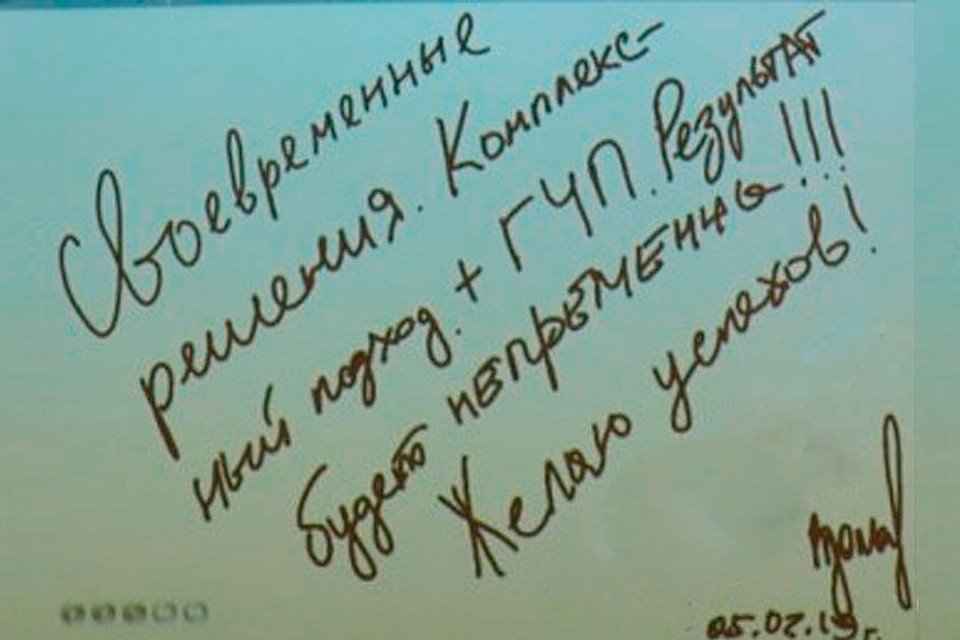 Своевременные
решения. Комплекс-
ный подход. + ГЧП. Результат
будет непременно!!!
Желаю успехов!
05.02.19г.